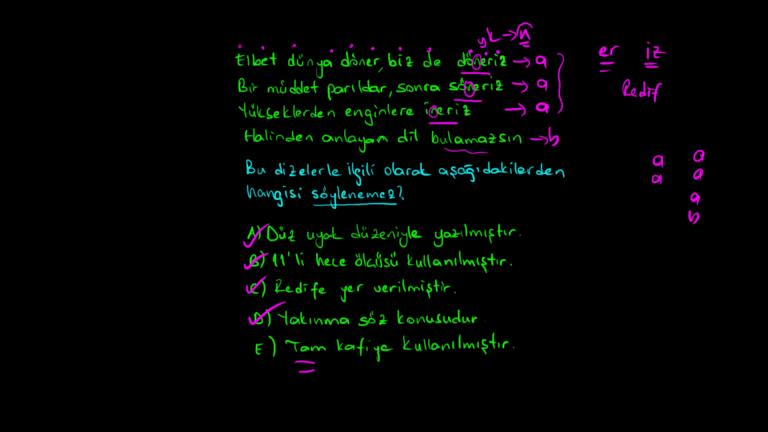 yk → n
Elbet dünya döner, biz de döneriz → a
er iz
Bir müddet parıldar, sonra söneriz → a
Redif
Yükseklerden enginlere ineriz → a
Halinden anlayan dil bulamazsın → b
Bu dizelerle ilgili olarak aşağıdakilerden
hangisi söylenemez?
a a
a a
a
b
A) Düz uyak düzeniyle yazılmıştır.
B) 11'li hece ölçüsü kullanılmıştır.
C) Redife yer verilmiştir.
D) Yakınma söz konusudur.
E) Tam kafiye kullanılmıştır.